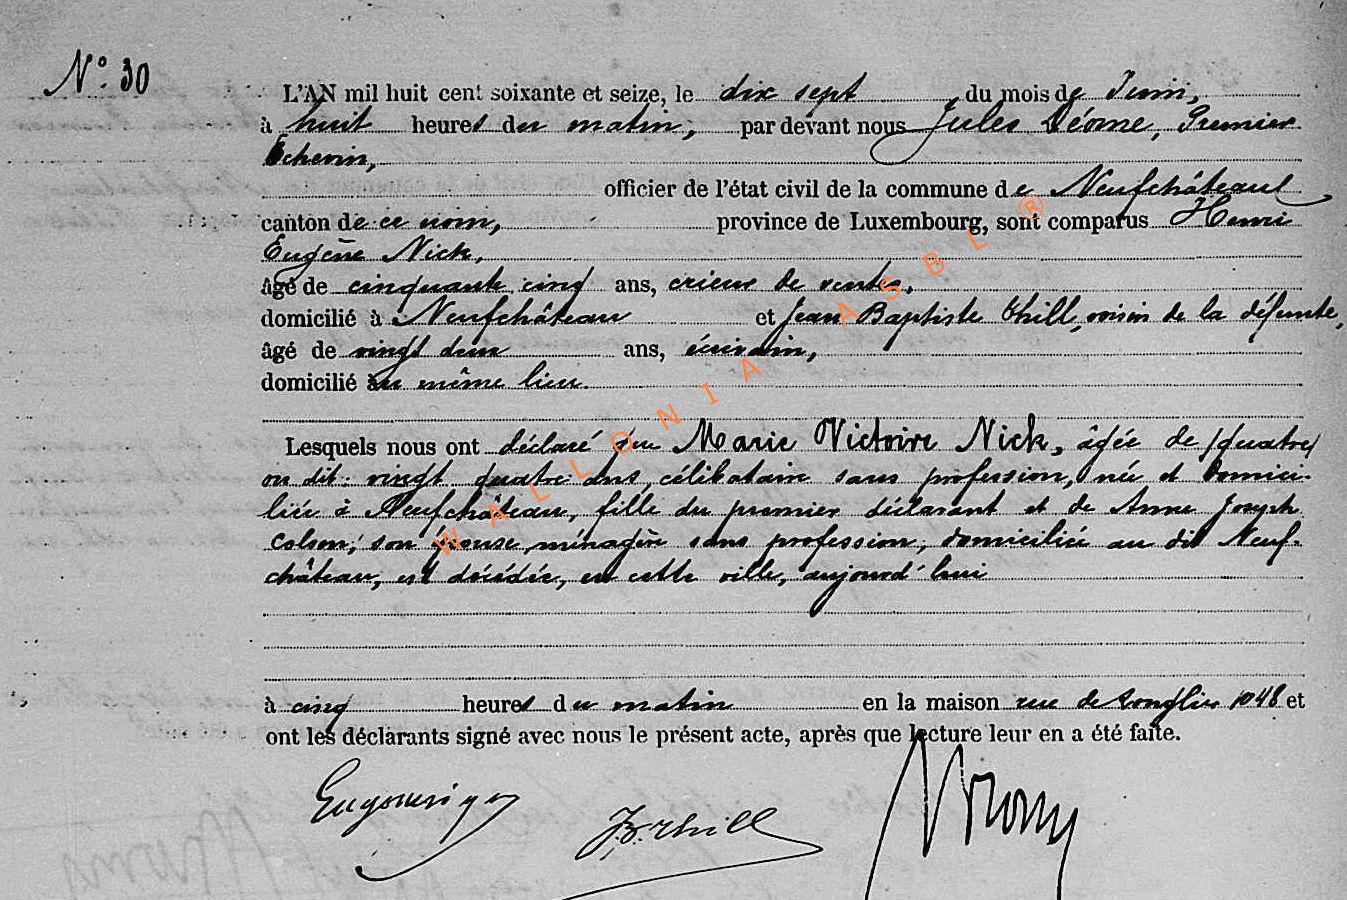 N° 30
L'AN mil huit cent soixante et seize, le dix sept du mois de Juin,
à huit heures du matin, par devant nous Jules Déome, Premier
Echevin,
officier de l'état civil de la commune de Neufchâteau
canton de ce nom, province de Luxembourg, sont comparus Henri
Eugène Nick,
âgé de cinquante cinq ans, crieur de ventes,
domicilié à Neufchâteau et Jean Baptiste Thill, voisin de la défunte,
âgé de vingt deux ans, écrivain,
domicilié au même lieu.
Lesquels nous ont déclaré que Marie Victoire Nick, âgée de quatre
on dit: vingt quatre ans, célibataire sans profession, née et domici-
liée à Neufchâteau, fille du premier déclarant et de Anne Joseph
Colson, son épouse, ménagère sans profession, domiciliée au dit Neuf-
château, est décédée, en cette ville, aujourd'hui
à cinq heures du matin en la maison rue de Longlier 1048 et
ont les déclarants signé avec nous le présent acte, après que lecture leur en a été faite.
JB Thill
WALLONIA ASBL ®